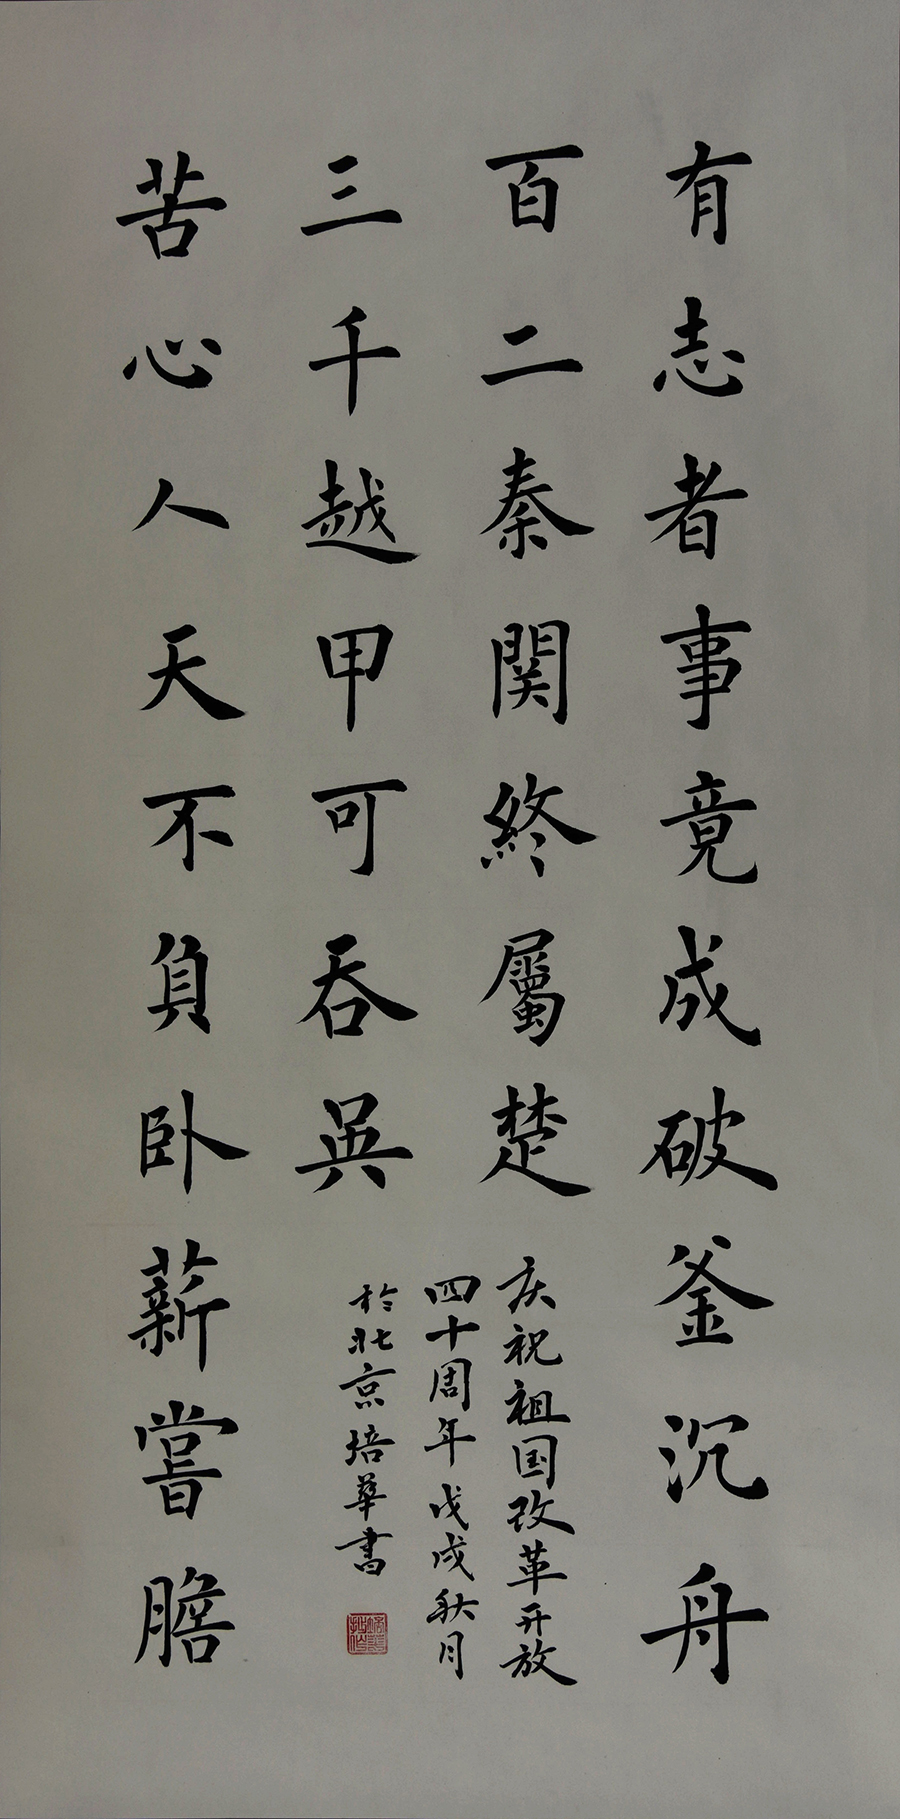 有志者事竟成破釜沉舟
百二秦関終屬楚
苦心人天不負卧薪嘗膽
三千越甲可吞吳
庆祝祖国改革开放
四十周年戊戌秋月
於北京培華書